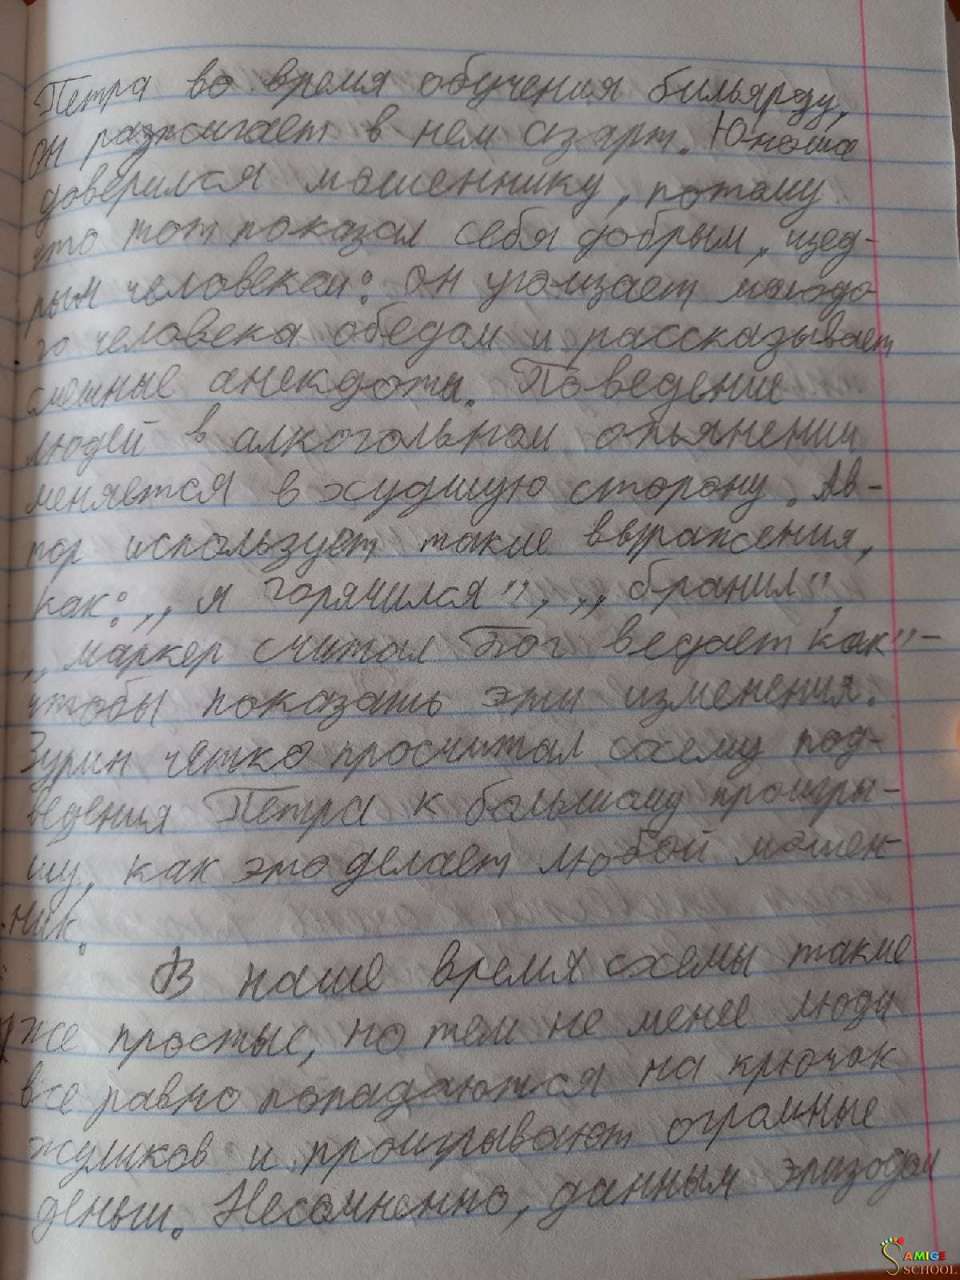 Петра во время обучения бильярду,
он разжигает в нем азарт. Юноша
доверился мошеннику, потому
что тот показал себя добрым, щед-
рым человеком: он угощает молодо
го человека обедом и рассказывает
смешные анекдоты. Поведение
людей в алкогольном опьянении
меняется в худшую сторону. Ав-
тор использует такие выражения,
как: „я горячился", „бранил",
„маркер считал Бог ведает как"-
чтобы показать эти изменения.
Зурин четко просчитал схему под-
ведения Петра к большому проигры-
шу, как это делает любой мошен-
ник.
В наше время схемы такие
же простые, но тем не менее люди
все равно попадаются на крючок
жуликов и проигрывают огромные
деньги. Несомненно, данным эпизодом
SAMIGE
SCHOOL